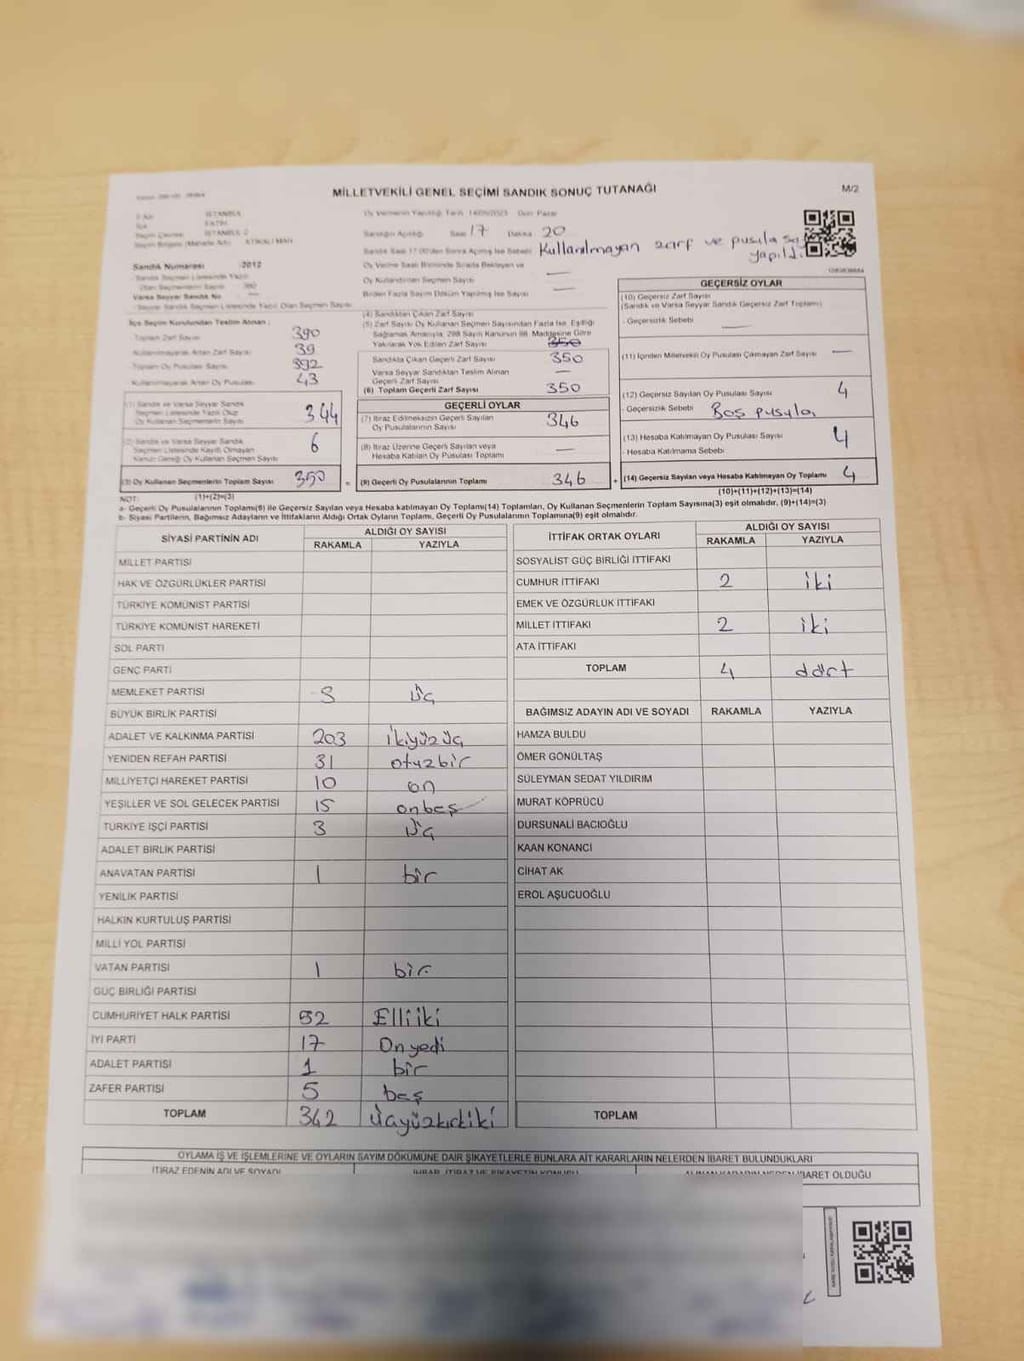 MİLLETVEKİLİ GENEL SEÇİMİ SANDIK SONUÇ TUTANAĞI
M/2
İSTANBUL
FATİH
İSTANBUL 2
Oy Vermenin Yapıldığı Tarih 14/05/2023 Gün: Pazar
Sandığın Açıldığı Saat 17 Dakika 20
Sandık Saat 17:00'den Sonra Açılmış İse Sebebi Kullanılmayan zarf ve pusula
yapıldı
Sandık Numarası :2012
Oy Verme Saati Bitiminde Sırada Bekleyen ve
Oy Kullandırılan Seçmen Sayısı —
Birden Fazla Sayım Döküm Yapılmış İse Sayısı —
İlçe Seçim Kurulundan Teslim Alınan ;
Toplam Zarf Sayısı 390
Kullanılmayarak Artan Zarf Sayısı 39
Toplam Oy Pusulası 392
Kullanılmayarak Artan Oy Pusulası 43
(1) Sandık ve Varsa Seyyar Sandık
Seçmen Listesinde Yazılı Olup
Oy Kullanan Seçmen Sayısı 344
(2) Sandık ve Varsa Seyyar Sandık
Seçmen Listesinde Kayıtlı Olmayan
Kanun Gereği Oy Kullanan Seçmen Sayısı 6
(3) Oy Kullanan Seçmenlerin Toplam Sayısı 350
(1)+(2)=(3)
(4) Sandıktan Çıkan Zarf Sayısı
(5) Zarf Sayısı Oy Kullanan Seçmen Sayısından Fazla İse, Eşitliği
Sağlamak Amacıyla, 298 Sayılı Kanunun 98. Maddesine Göre
Yakılarak Yok Edilen Zarf Sayısı 350
Sandıkta Çıkan Geçerli Zarf Sayısı 350
Varsa Seyyar Sandıktan Teslim Alınan
Geçerli Zarf Sayısı —
(6) Toplam Geçerli Zarf Sayısı 350
GEÇERLİ OYLAR
(7) İtiraz Edilmeksizin Geçerli Sayılan
Oy Pusulasının Sayısı 346
(8) İtiraz Üzerine Geçerli Sayılan veya
Hesaba Katılan Oy Pusulası Toplamı —
= (9) Geçerli Oy Pusulalarının Toplamı 346
GEÇERSİZ OYLAR
(10) Geçersiz Zarf Sayısı
(Sandık ve Varsa Seyyar Sandık Geçersiz Zarf Toplamı)
- Geçersizlik Sebebi —
(11) İçinden Milletvekili Oy Pusulası Çıkmayan Zarf Sayısı —
(12) Geçersiz Sayılan Oy Pusulası Sayısı 4
- Geçersizlik Sebebi Boş pusula
(13) Hesaba Katılmayan Oy Pusulası Sayısı 4
- Hesaba Katılmama Sebebi
+ (14) Geçersiz Sayılan veya Hesaba Katılmayan Oy Toplamı 4
(10)+(11)+(12)+(13)=(14)
NOT:
a- Geçerli Oy Pusulalarının Toplamı(9) ile Geçersiz Sayılan veya Hesaba katılmayan Oy Toplamı(14) Toplamları, Oy Kullanan Seçmenlerin Toplam Sayısına(3) eşit olmalıdır. (9)+(14)=(3)
b- Siyasi Partilerin, Bağımsız Adayların ve İttifakların Aldığı Ortak Oyların Toplamı, Geçerli Oy Pusulalarının Toplamına(9) eşit olmalıdır.
SİYASİ PARTİNİN ADI ALDIĞI OY SAYISI
RAKAMLA YAZIYLA
MİLLET PARTİSİ
HAK VE ÖZGÜRLÜKLER PARTİSİ
TÜRKİYE KOMÜNİST PARTİSİ
TÜRKİYE KOMÜNİST HAREKETİ
SOL PARTİ
GENÇ PARTİ
MEMLEKET PARTİSİ 3 üç
BÜYÜK BİRLİK PARTİSİ
ADALET VE KALKINMA PARTİSİ 203 ikiyüzüç
YENİDEN REFAH PARTİSİ 31 otuzbir
MİLLİYETÇİ HAREKET PARTİSİ 10 on
YEŞİLLER VE SOL GELECEK PARTİSİ 15 onbeş
TÜRKİYE İŞÇİ PARTİSİ 3 üç
ADALET BİRLİK PARTİSİ
ANAVATAN PARTİSİ 1 bir
YENİLİK PARTİSİ
HALKIN KURTULUŞ PARTİSİ
MİLLİ YOL PARTİSİ
VATAN PARTİSİ 1 bir
GÜÇ BİRLİĞİ PARTİSİ
CUMHURİYET HALK PARTİSİ 52 Elliiki
İYİ PARTİ 17 Onyedi
ADALET PARTİSİ 1 bir
ZAFER PARTİSİ 5 beş
TOPLAM 342 üçyüzkırkiki
İTTİFAK ORTAK OYLARI ALDIĞI OY SAYISI
RAKAMLA YAZIYLA
SOSYALİST GÜÇ BİRLİĞİ İTTİFAKI
CUMHUR İTTİFAKI 2 iki
EMEK VE ÖZGÜRLÜK İTTİFAKI
MİLLET İTTİFAKI 2 iki
ATA İTTİFAKI
TOPLAM 4 dört
BAĞIMSIZ ADAYIN ADI VE SOYADI RAKAMLA YAZIYLA
HAMZA BULDU
ÖMER GÖNÜLTAŞ
SÜLEYMAN SEDAT YILDIRIM
MURAT KÖPRÜCÜ
DURSUNALİ BACIOĞLU
KAAN KONANCİ
CİHAT AK
EROL AŞUCUOĞLU
TOPLAM
OYLAMA İŞ VE İŞLEMLERİNE VE OYLARIN SAYIM DÖKÜMÜNE DAİR ŞİKAYETLERLE BUNLARA AİT KARARLARIN NELERDEN İBARET BULUNDUKLARI
İTİRAZ EDENİN ADI VE SOYADI
İBARET OLDUĞU